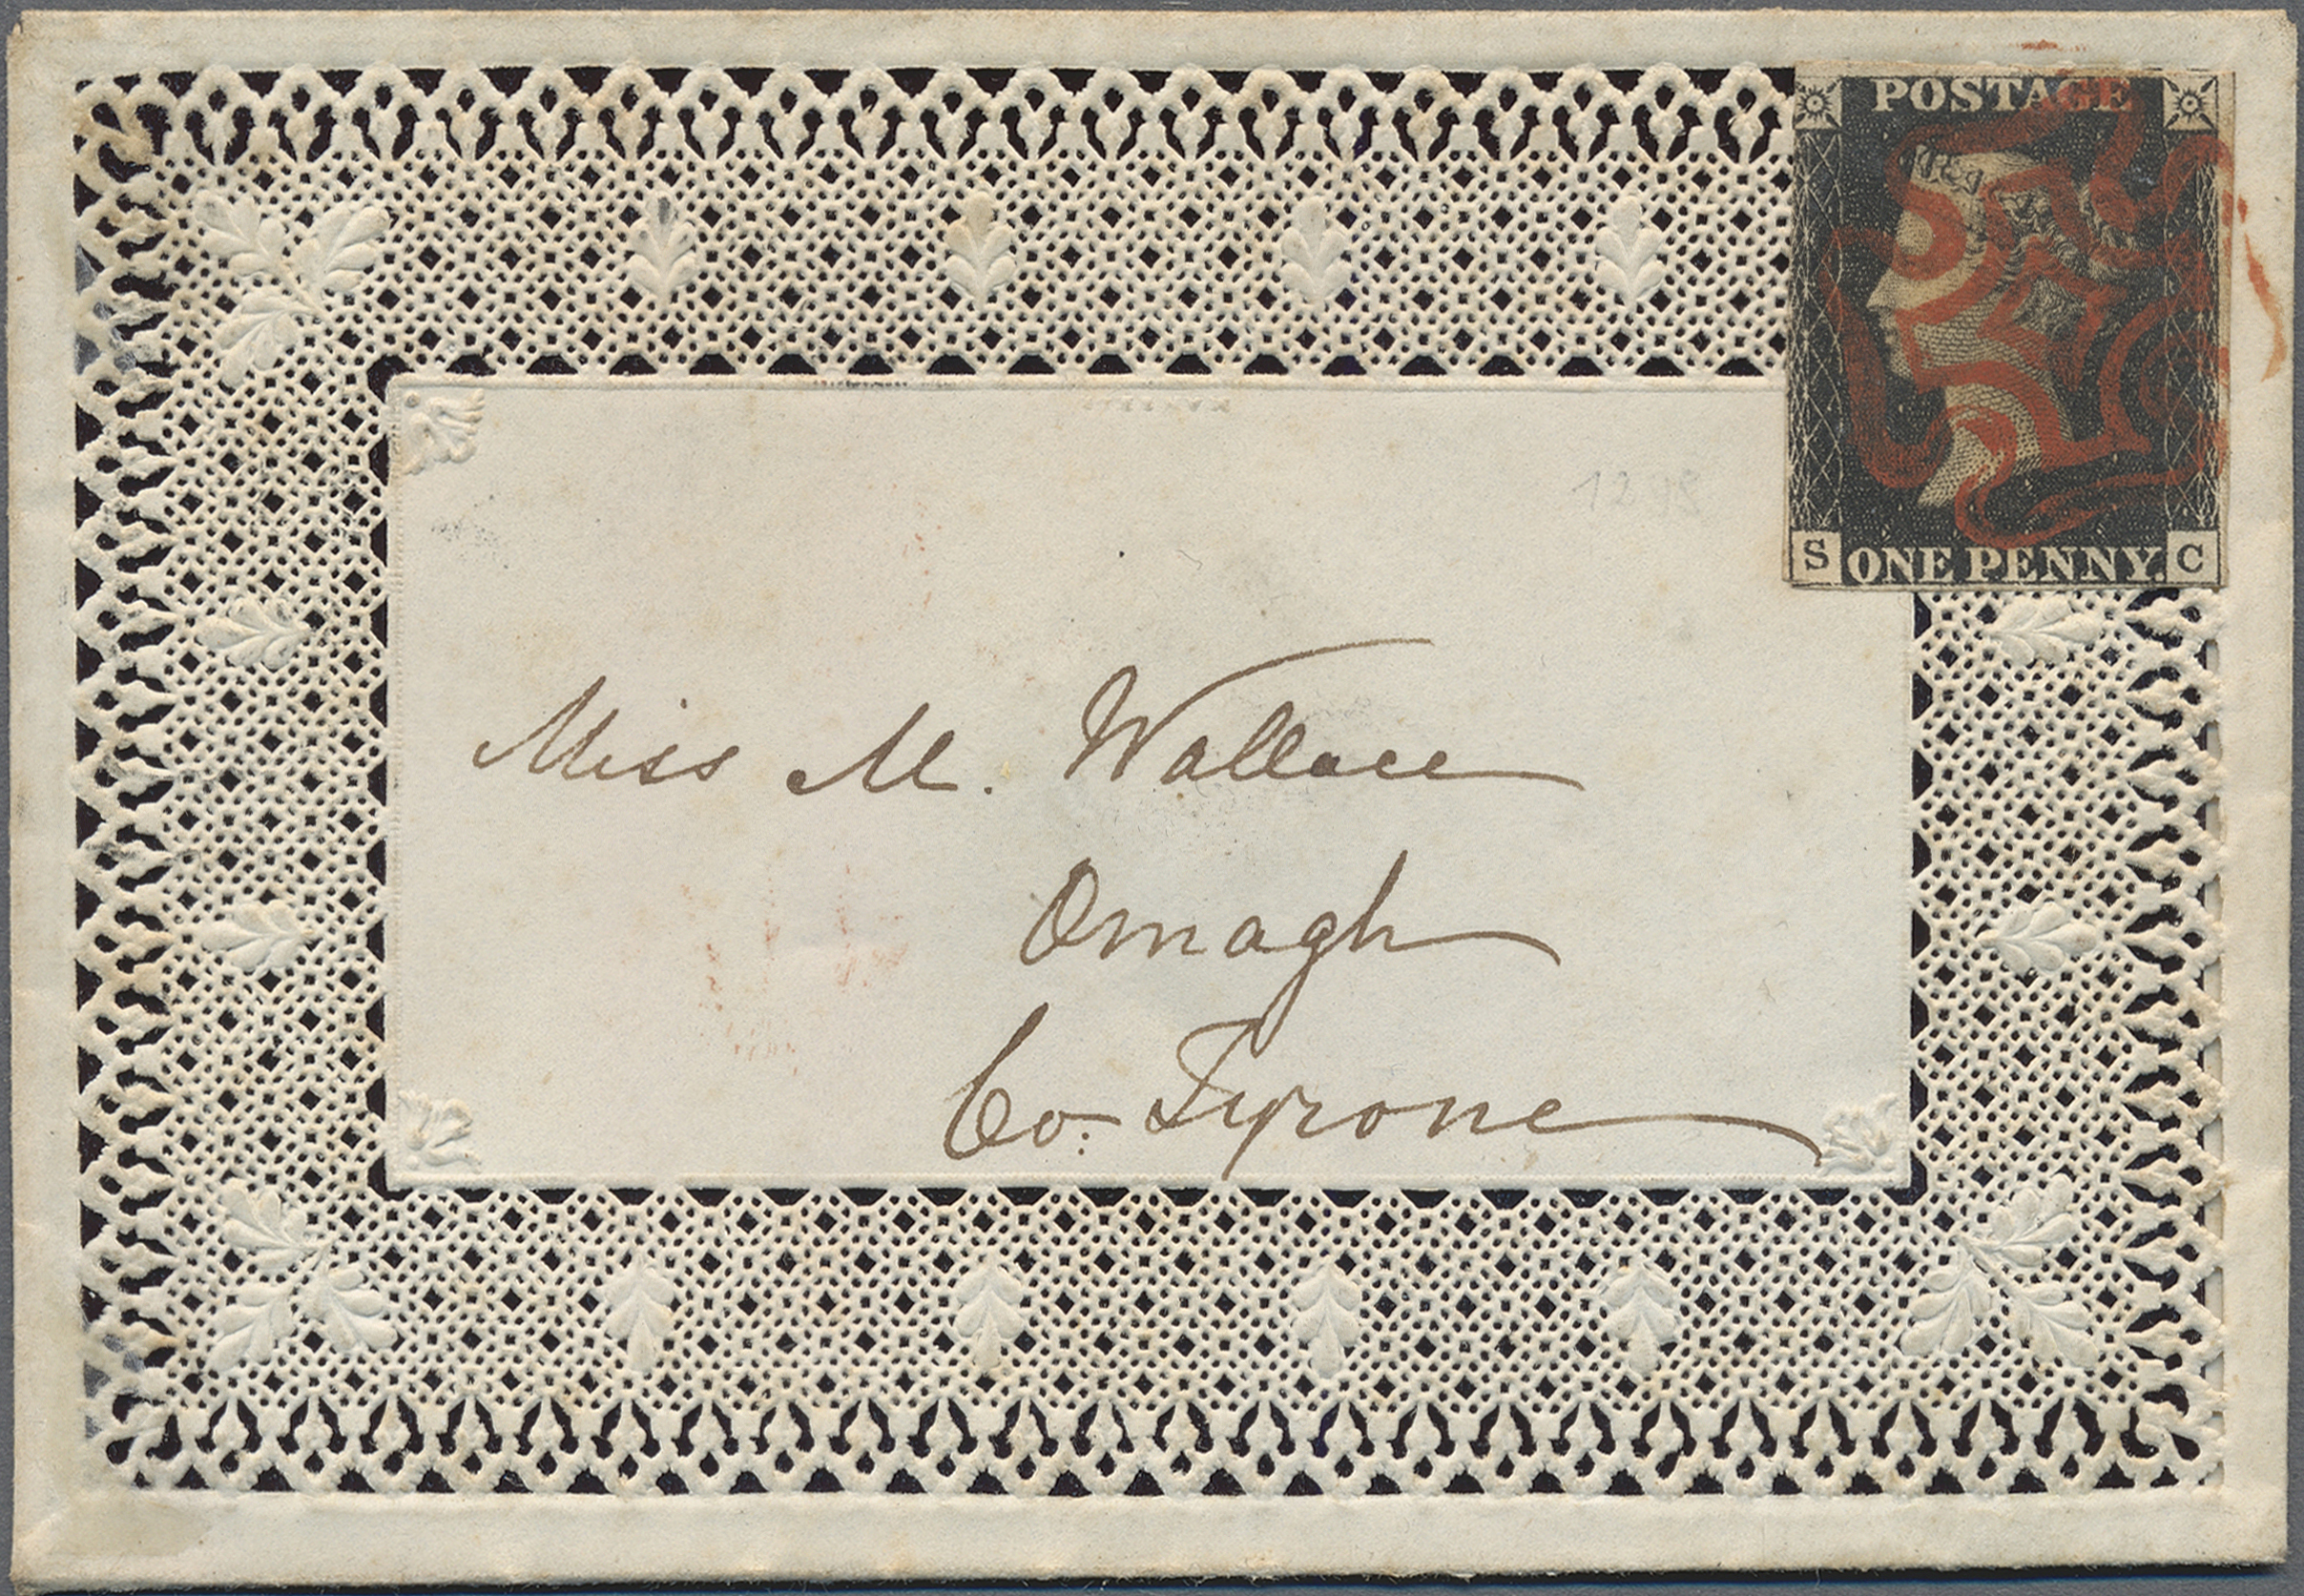 POSTAGE
S ONE PENNY. C
Miss M. Wallace
Omagh
Co. Tyrone